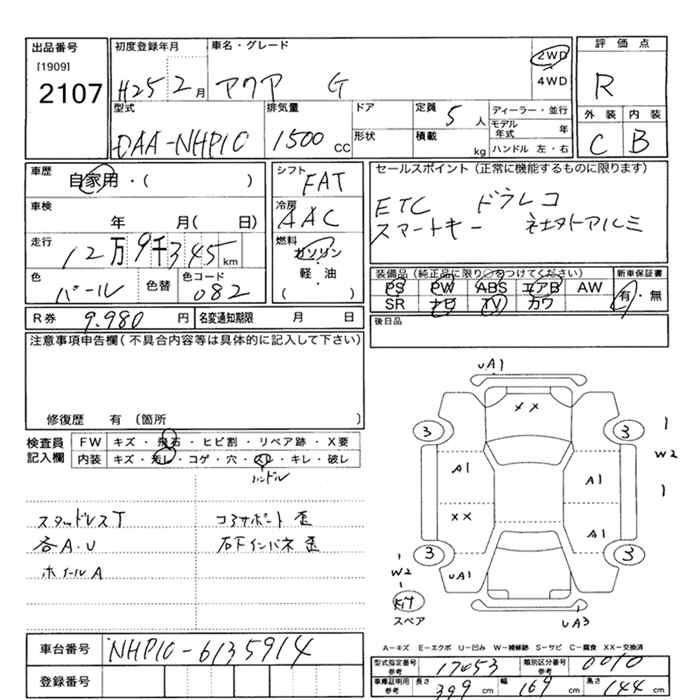 出品番号 初度登録年月 車名・グレード 評価点
[1909] 2107 H25 2月 アクア G 2WD 4WD R
型式 排気量 ドア 定員 5人 ディーラー・並行 外装 内装
DAA-NHP10 1500cc 形状 積載 kg モデル年式 年 ハンドル 左・右 C B
車歴 自家用・( ) シフト FAT セールスポイント(正常に機能するものに限ります)
車検 年 月( 日) 冷房 AAC ETC ドラレコ
スマートキー 社外アルミ
走行 12万9千345km 燃料 ガソリン・軽油 ( )
装備品(純正品に限り○をつけてください) 新車保証書
色 パール 色替 色コード 082 PS PW ABS エアB AW 有・無
SR ナビ TV カワ
R券 9.980円 名変通知期限 月 日 後日品
注意事項申告欄(不具合内容等は具体的に記入して下さい)
修復歴 有(箇所 )
検査員記入欄 FW キズ・飛石・ヒビ割・リペア跡・X要
内装 キズ・汚レ・コゲ・穴・スレ・キレ・破レ
ハンドル
スタッドレスT コアサポート歪
各A.U 右下インパネ歪
ホイールA
UA1
XX
3 3
A1 A1 W2
XX A1
3 3
W2 UA1 UA1
スペア UA3
A-キズ E-エクボ U-凹み W-補修跡 S-サビ C-腐食 XX-交換済
車台番号 NHP10-6135914
型式指定番号 参考 17053 類別区分番号 参考 0010
登録番号
車庫証明用 参考 長さ 399cm 幅 169cm 高さ 144cm